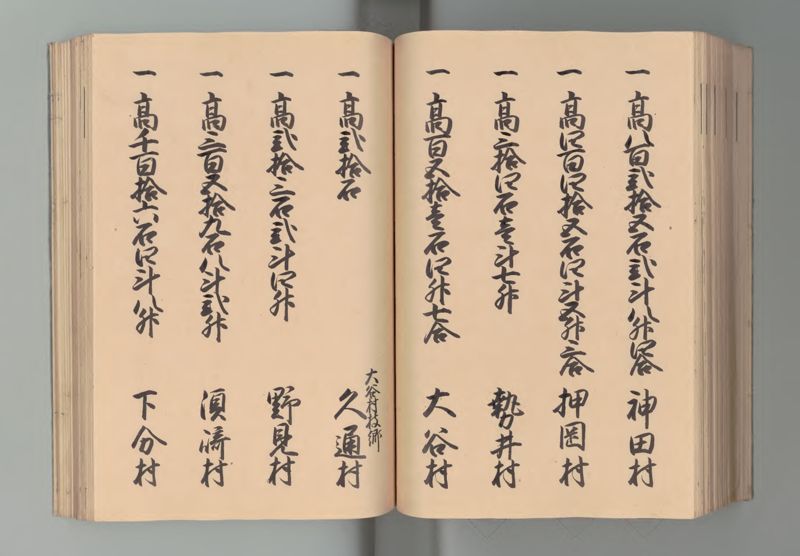 一 高八百弐拾五石弐斗八升四合 神田村
一 高四百四拾五石四斗五升三合 押岡村
一 高三拾四石壱斗七升 勢井村
一 高百五拾壱石四升七合 大谷村
大谷村枝郷
一 高弐拾石 久通村
一 高弐拾三石弐斗四升 野見村
一 高三百五拾九石八斗弐升 須崎村
一 高千百拾六石四斗八升 下分村